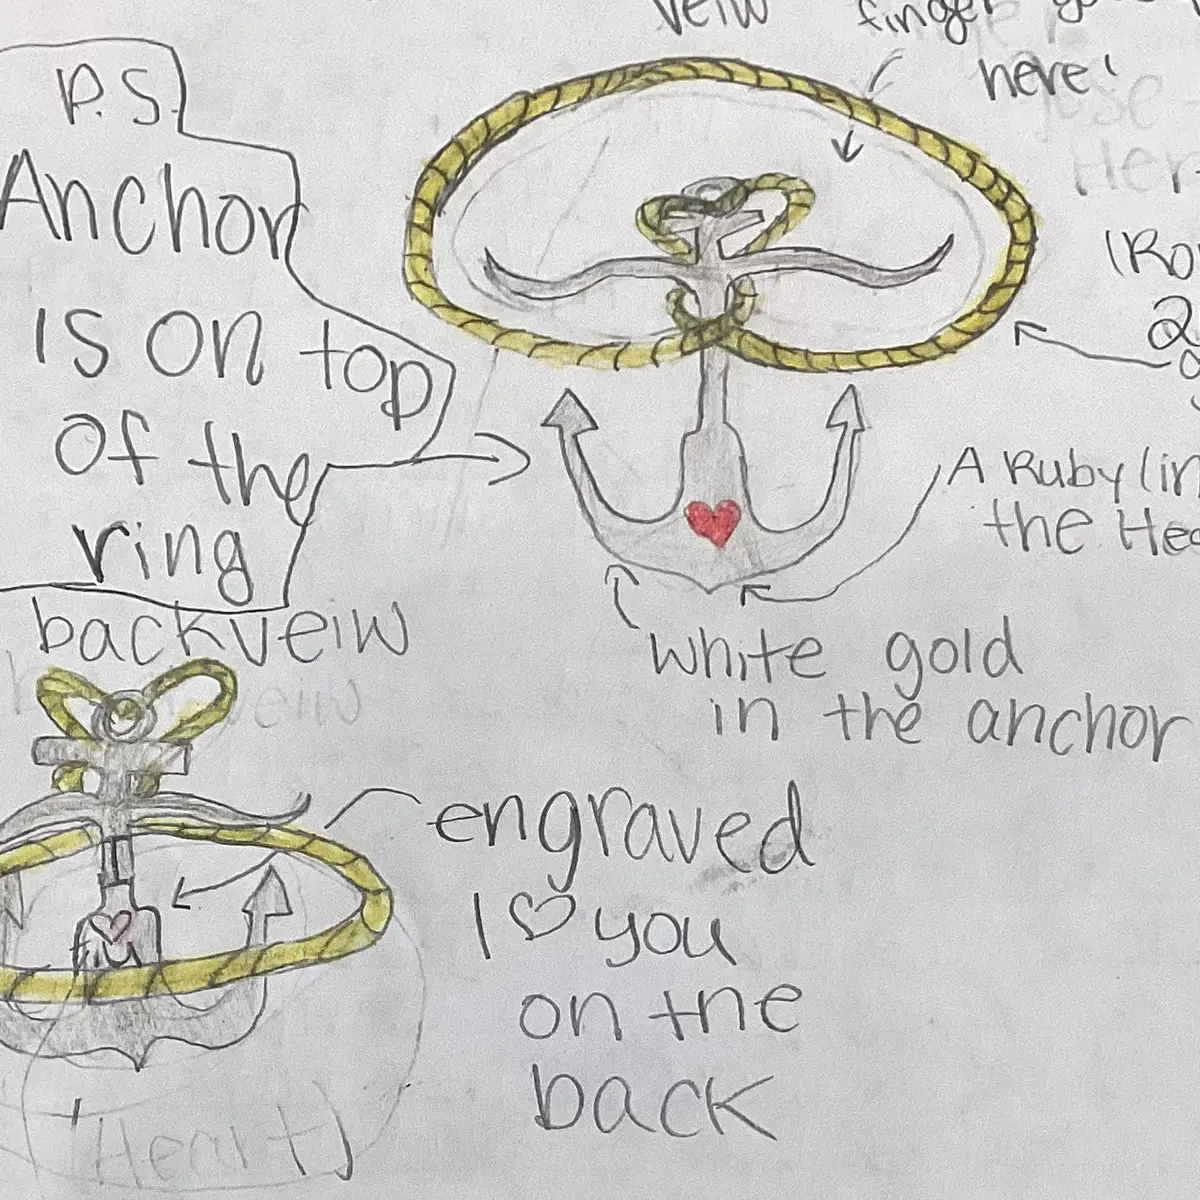 veiw
finger
here!
P.S.
Anchor
is on top
of the
ring
A Ruby (in
the
white gold
in the anchor
backveiw
engraved
I ♡ you
on the
back
(Heart)